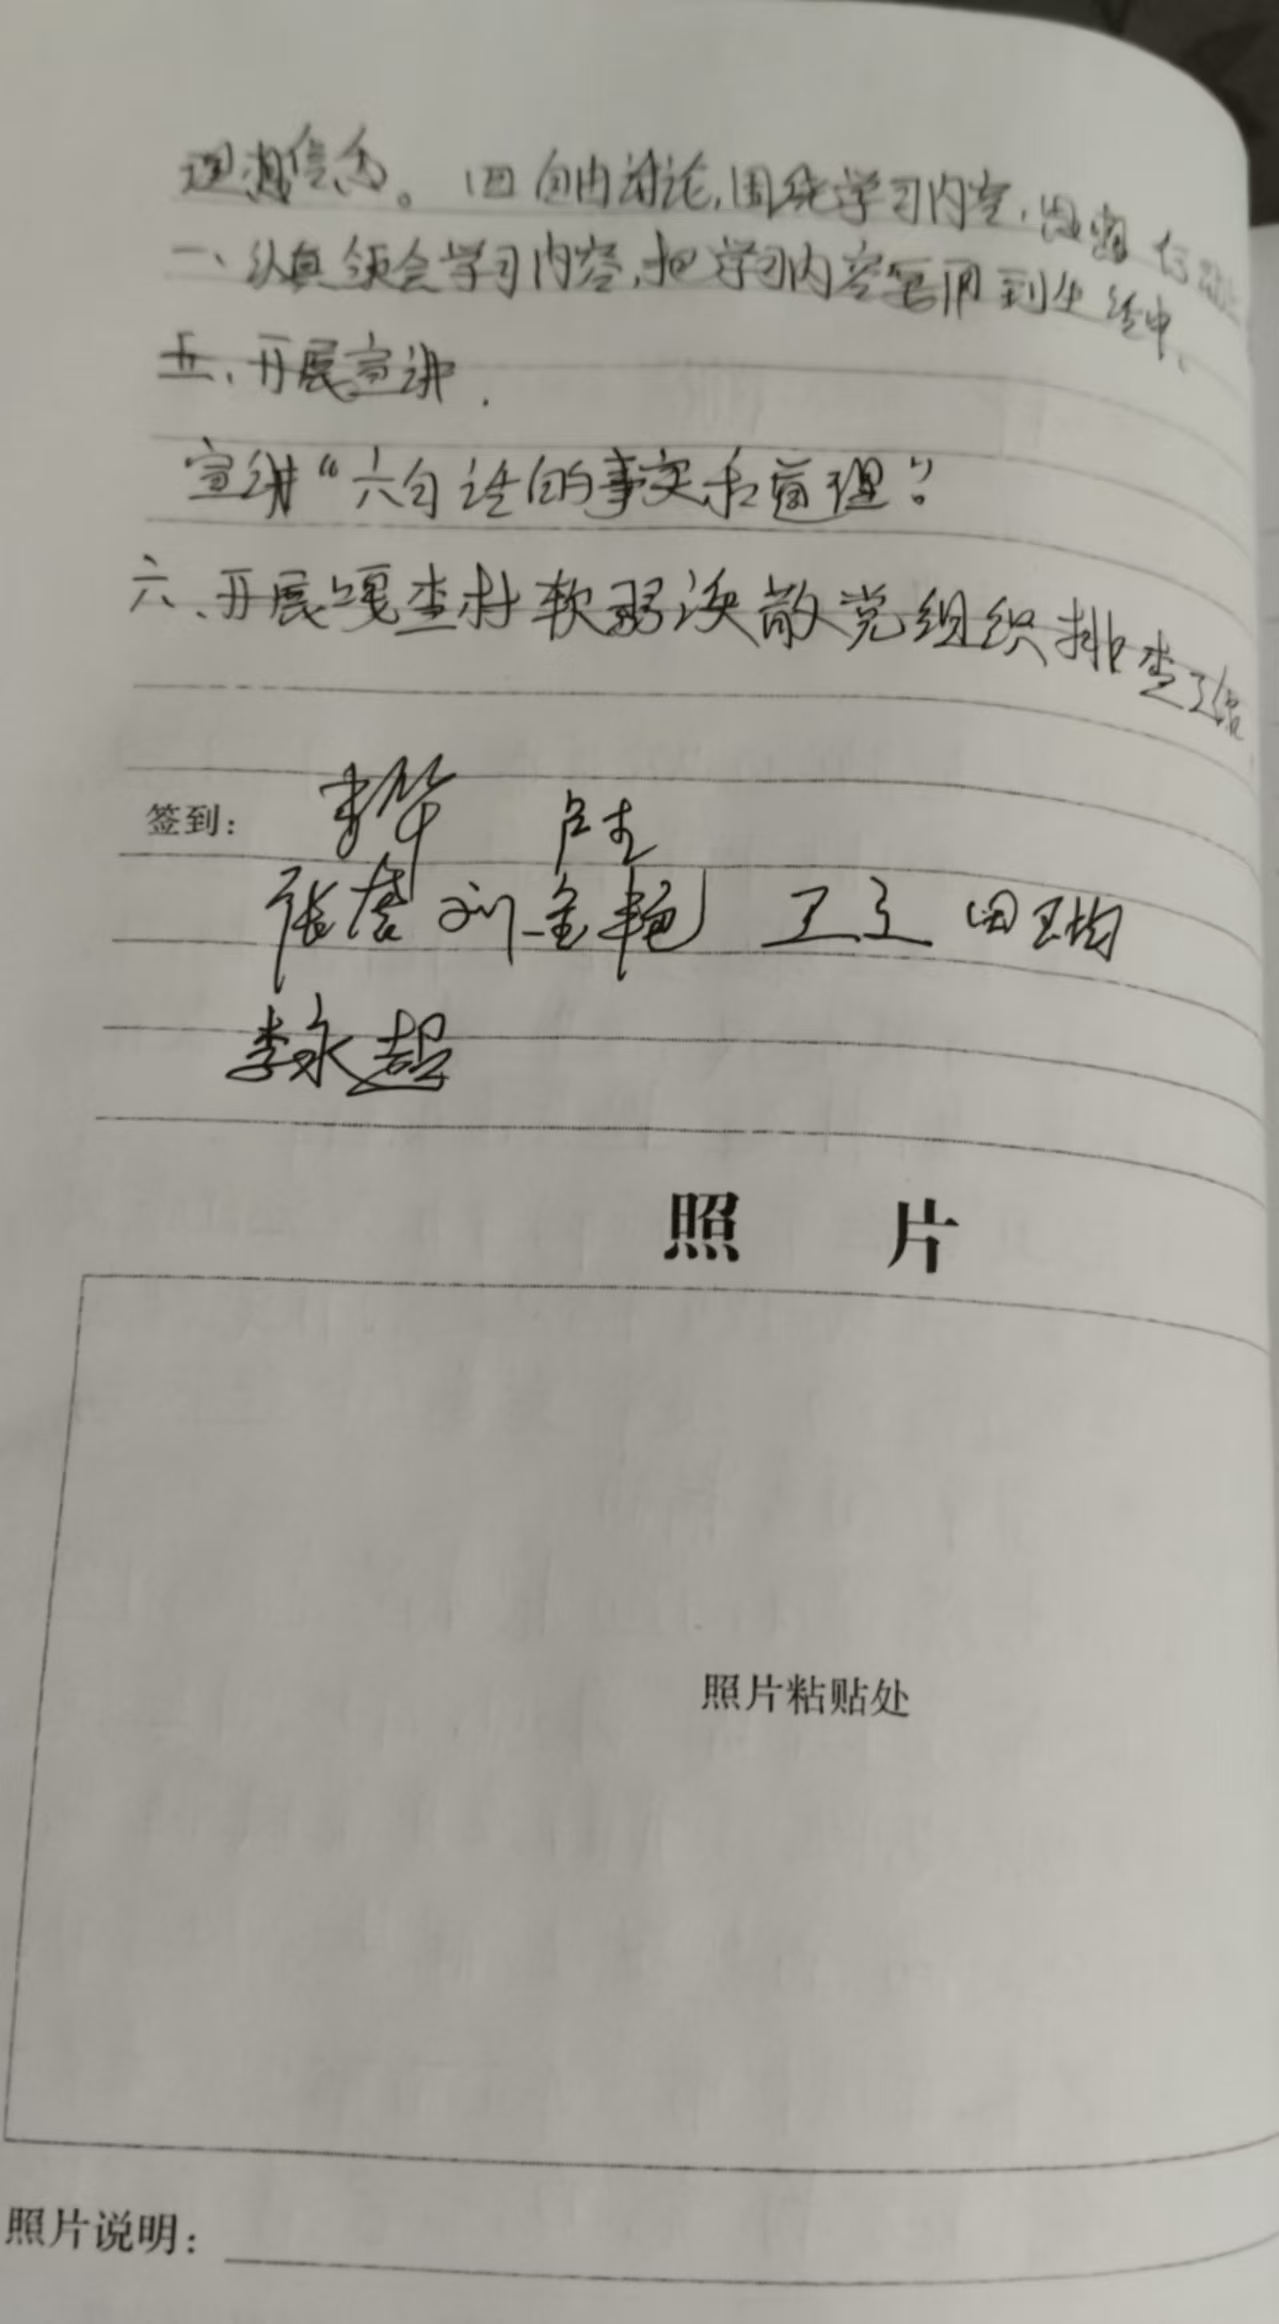 理想信念。四自由讨论,围绕学习内容,
一、认真领会学习内容,把学习内容运用到生活中、
五、开展宣讲.
宣讲“六句话的事实和道理”.
六、开展嘎查村软弱涣散党组织排查工作
签到:
张 刘金艳 卫立 田玉均
李永超
照 片
照片粘贴处
照片说明: